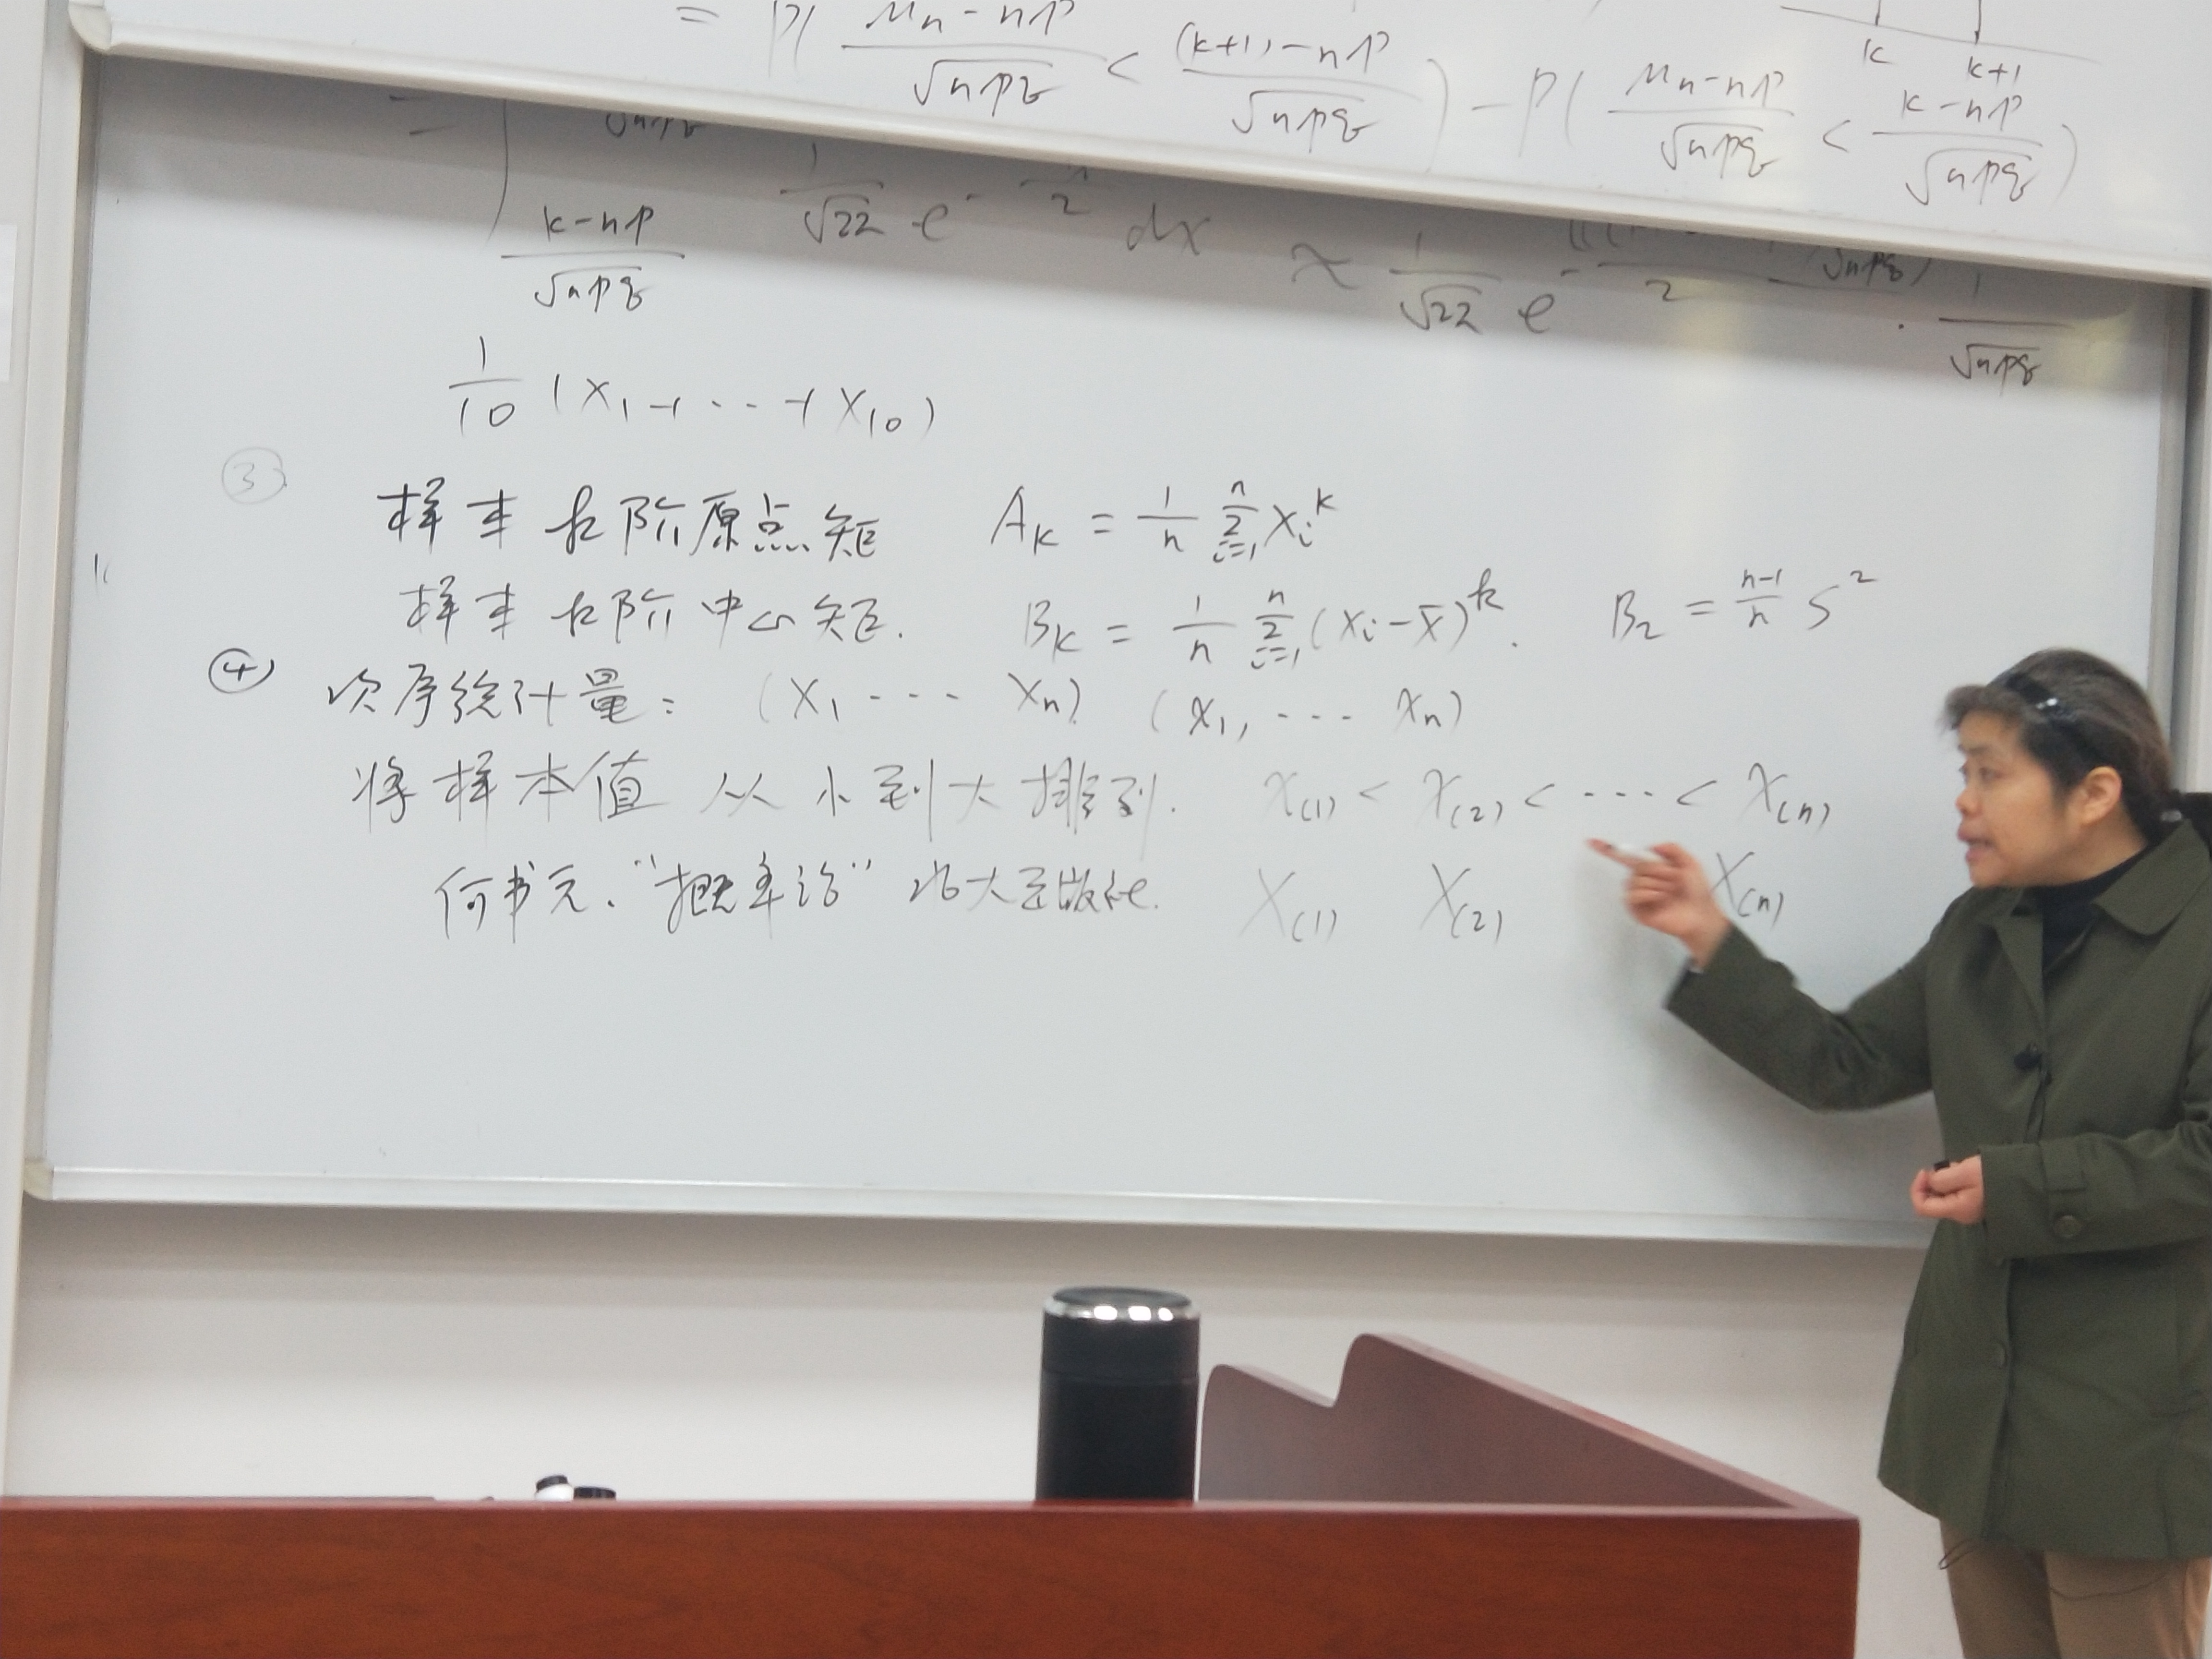 = P( (μn - np)/√npq < ((k+1) - np)/√npq ) - P( (μn - np)/√npq < (k - np)/√npq )
k k+1
= ∫ k-np/√npq 1/√2π e^- /2 dx ≈ 1/√2π e^- /2 · 1/√npq
1/10 (X₁+···+X₁₀)
③ 样本k阶原点矩 Aₖ = 1/n Σᵢ₌₁ⁿ Xᵢᵏ
样本k阶中心矩. Bₖ = 1/n Σᵢ₌₁ⁿ (Xᵢ-X̄)ᵏ. B₂ = (n-1)/n S²
④ 次序统计量: (X₁ ··· Xₙ) (x₁, ··· xₙ)
将样本值 从小到大排列. x₍₁₎ < x₍₂₎ < ··· < x₍ₙ₎
何书元. "概率论" 北大出版社. X₍₁₎ X₍₂₎ X₍ₙ₎